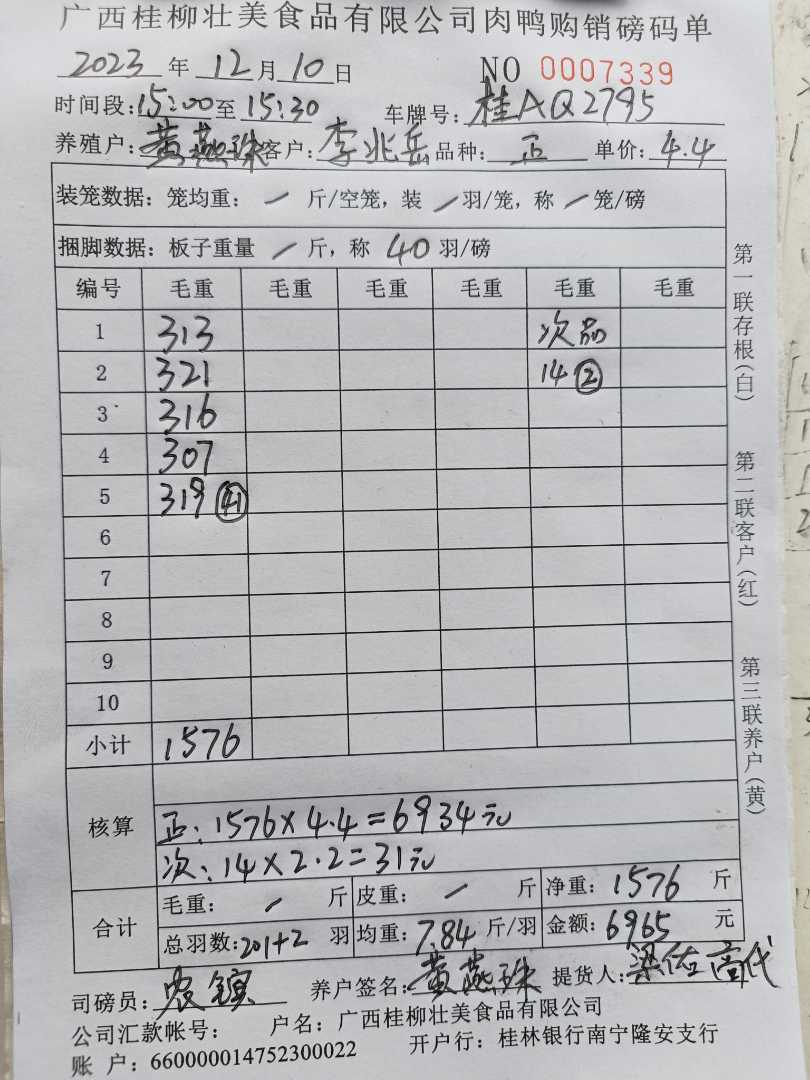 广西桂柳壮美食品有限公司肉鸭购销磅码单
2023 年 12 月 10 日 NO 0007339
时间段: 15:00 至 15:30 车牌号: 桂AQ2795
养殖户: 黄燕珠 客户: 李兆岳 品种: 正 单价: 4.4
装笼数据: 笼均重: / 斤/空笼, 装 / 羽/笼, 称 / 笼/磅
捆脚数据: 板子重量 / 斤, 称 40 羽/磅
编号 毛重 毛重 毛重 毛重 毛重 毛重
1 313 次品
2 321 14 ②
3 316
4 307
5 319 (41)
6
7
8
9
10
小计 1576
核算
正: 1576×4.4=6934元
次: 14×2.2=31元
合计
毛重: / 斤 皮重: / 斤 净重: 1576 斤
总羽数: 201+2 羽 均重: 7.84 斤/羽 金额: 6965 元
司磅员: 农镔 养户签名: 黄燕珠 提货人: 梁佑高代
公司汇款帐号: 户名: 广西桂柳壮美食品有限公司
账 户: 660000014752300022 开户行: 桂林银行南宁隆安支行
第一联存根(白)
第二联客户(红)
第三联养户(黄)